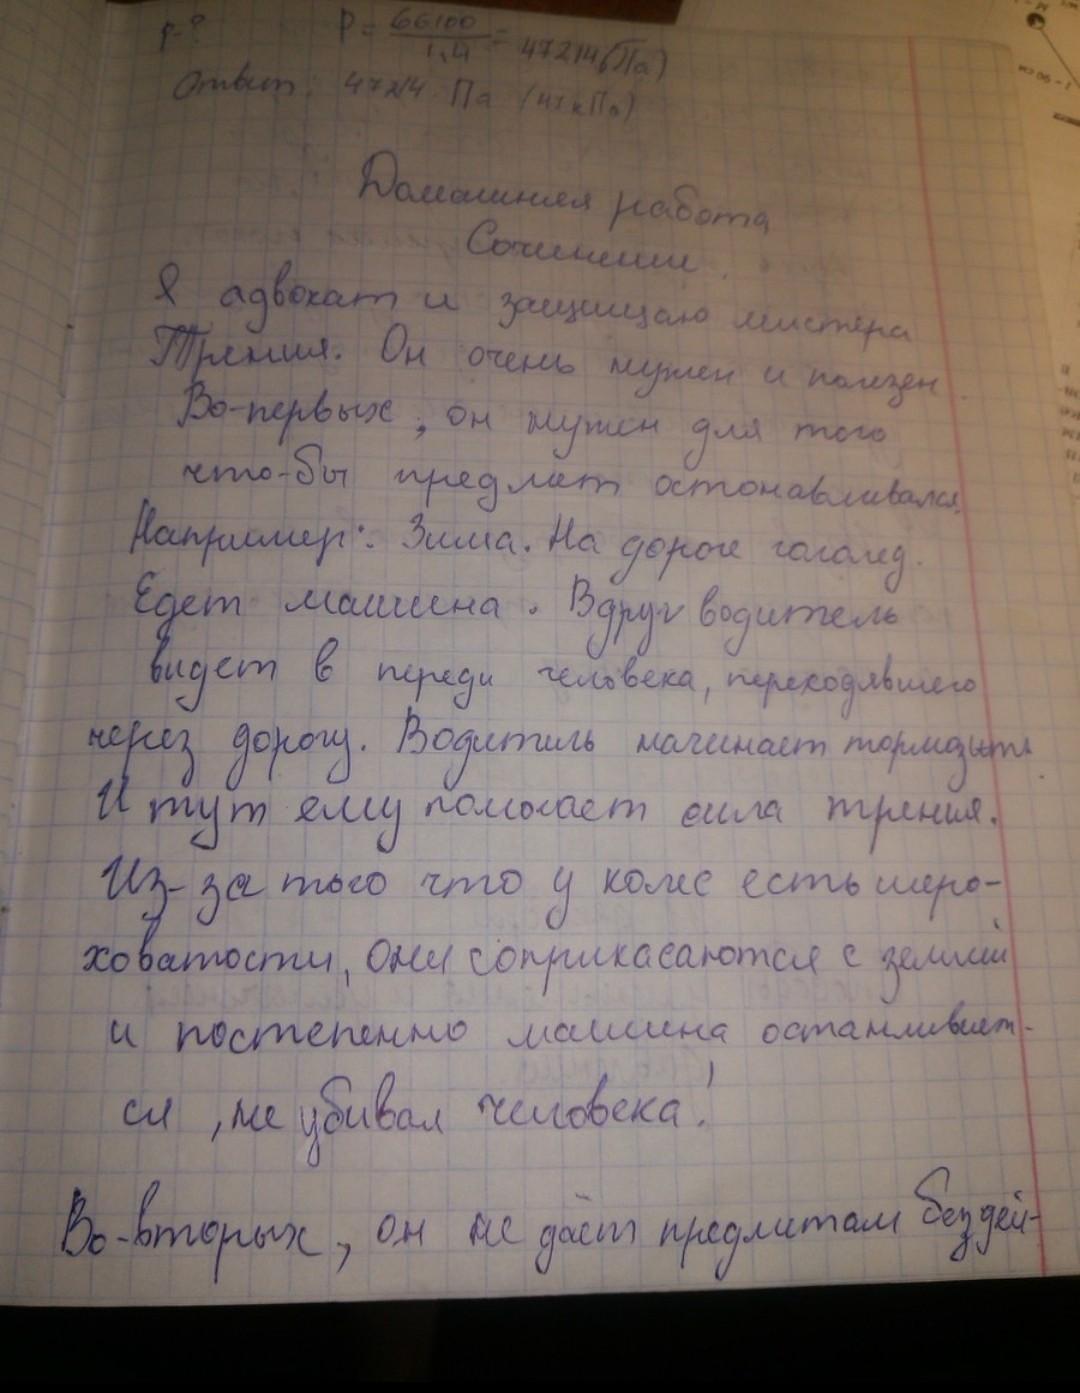 р-? Р = 66100 / 1,4 = 47214(Па)
Ответ: 47214 Па (47кПа)
Домашняя работа
Сочинение.
Я адвокат и защищаю мистера
Трения. Он очень нужен и полезен.
Во-первых, он нужен для того
что-бы предмет остонавливался.
Например: Зима. На дороге гололед.
Едет машина. Вдруг водитель
видет в переди человека, переходявшего
через дорогу. Водитель начинает тормозить
И тут ему помогает сила трения.
Из-за того что у колес есть шеро-
ховатости, они соприкасаются с землёй
и постепенно машина останливает-
ся, не убивая человека!
Во-вторых, он не даёт предметам бездей-